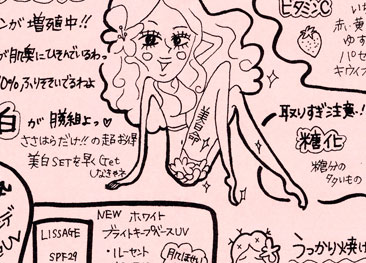 ンが増殖中!!
が肌奥にひそんでいるわっ
0%ふりそそいでるわよ
白が勝組よっ
ささはらだけ!!の超お得
美白SETを早くGet
しなきゃネ
美白命
ビタミンC
赤・黄
ゆず
パセ
キウイフ
取りすぎ注意・!
糖化
糖分の
多いもの
LISSAGE
SPF29
NEW ホワイト
ブライトキープベースUV
・ルーセント
うっかり焼け